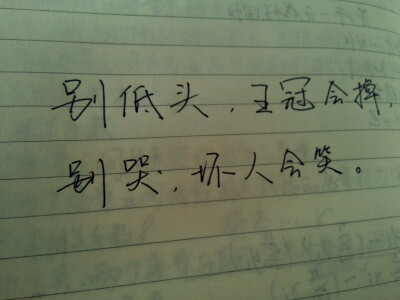 别低头,王冠会掉,
别哭,坏人会笑。